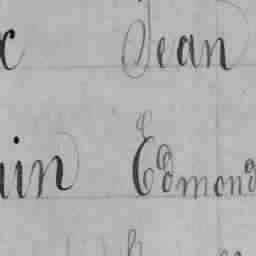 c Jean
in Edmond